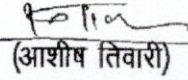 (आशीष तिवारी)